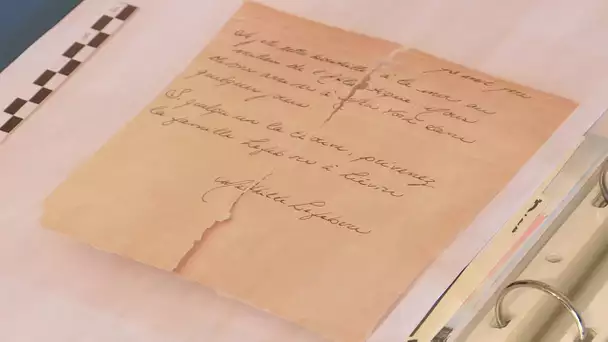 cette bouteille à la mer au
milieu de l'Atlantique Nous
devons arriver à New York dans
quelques jours
Si quelqu'un la trouve, prévenez
la famille Lefebvre à Liévin
Mathilde Lefebvre